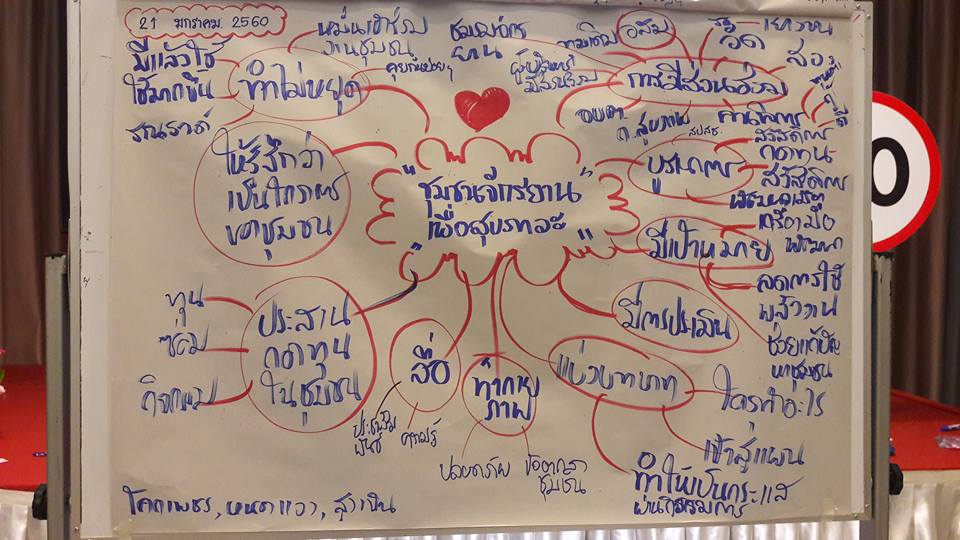 21 มกราคม 2560
หมั่นเข้าร่วม
งานชุมชน
คุยกันบ่อยๆ
มีแล้วใช้
ใช้มากขึ้น
รณรงค์
ทำไม่หยุด
ชมรมจักร
ยาน
อสม
วัด
เยาวชน
การมีส่วนร่วม
ให้รู้สึกว่า
เป็นโครงการ
ของชุมชน
"ชุมชนจักรยาน
เพื่อสุขภาวะ"
สปสช.
บูรณาการ
สวัสดิการ
กองทุน
สวัสดิการ
มีเป้าหมาย
เครื่องมือ
พัฒนา
ลดการใช้
พลังงาน
ช่วยแก้ปัญ
หาชุมชน
มีการประเมิน
แบ่งบทบาท
ใครทำอะไร
เข้าสู่แผน
ทำให้เป็นกระแส
ผ่านกิจกรรมการ
ทุน
ซ่อม
กิจกรรม
ประสาน
กองทุน
ในชุมชน
สื่อ
ประชาสัม
พันธ์
ความรู้
ทำกาย
ภาพ
ปลอดภัย
ข้อตกลง
ชุมชน
โคกเพชร, หนองแวง, สุขเกิน
0